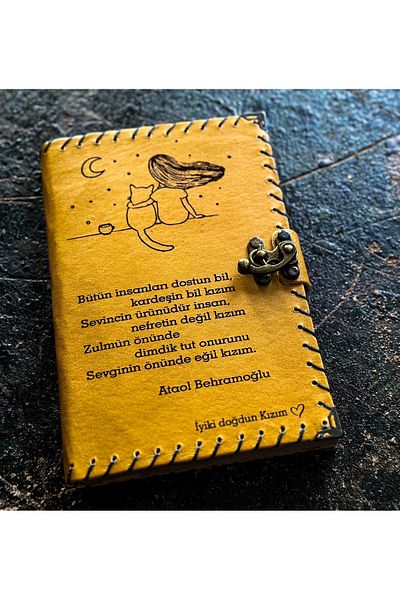 Bütün insanları dostun bil,
kardeşin bil kızım
Sevincin ürünüdür insan,
nefretin değil kızım
Zulmün önünde
dimdik tut onurunu
Sevginin önünde eğil kızım.
Ataol Behramoğlu
İyiki doğdun Kızım